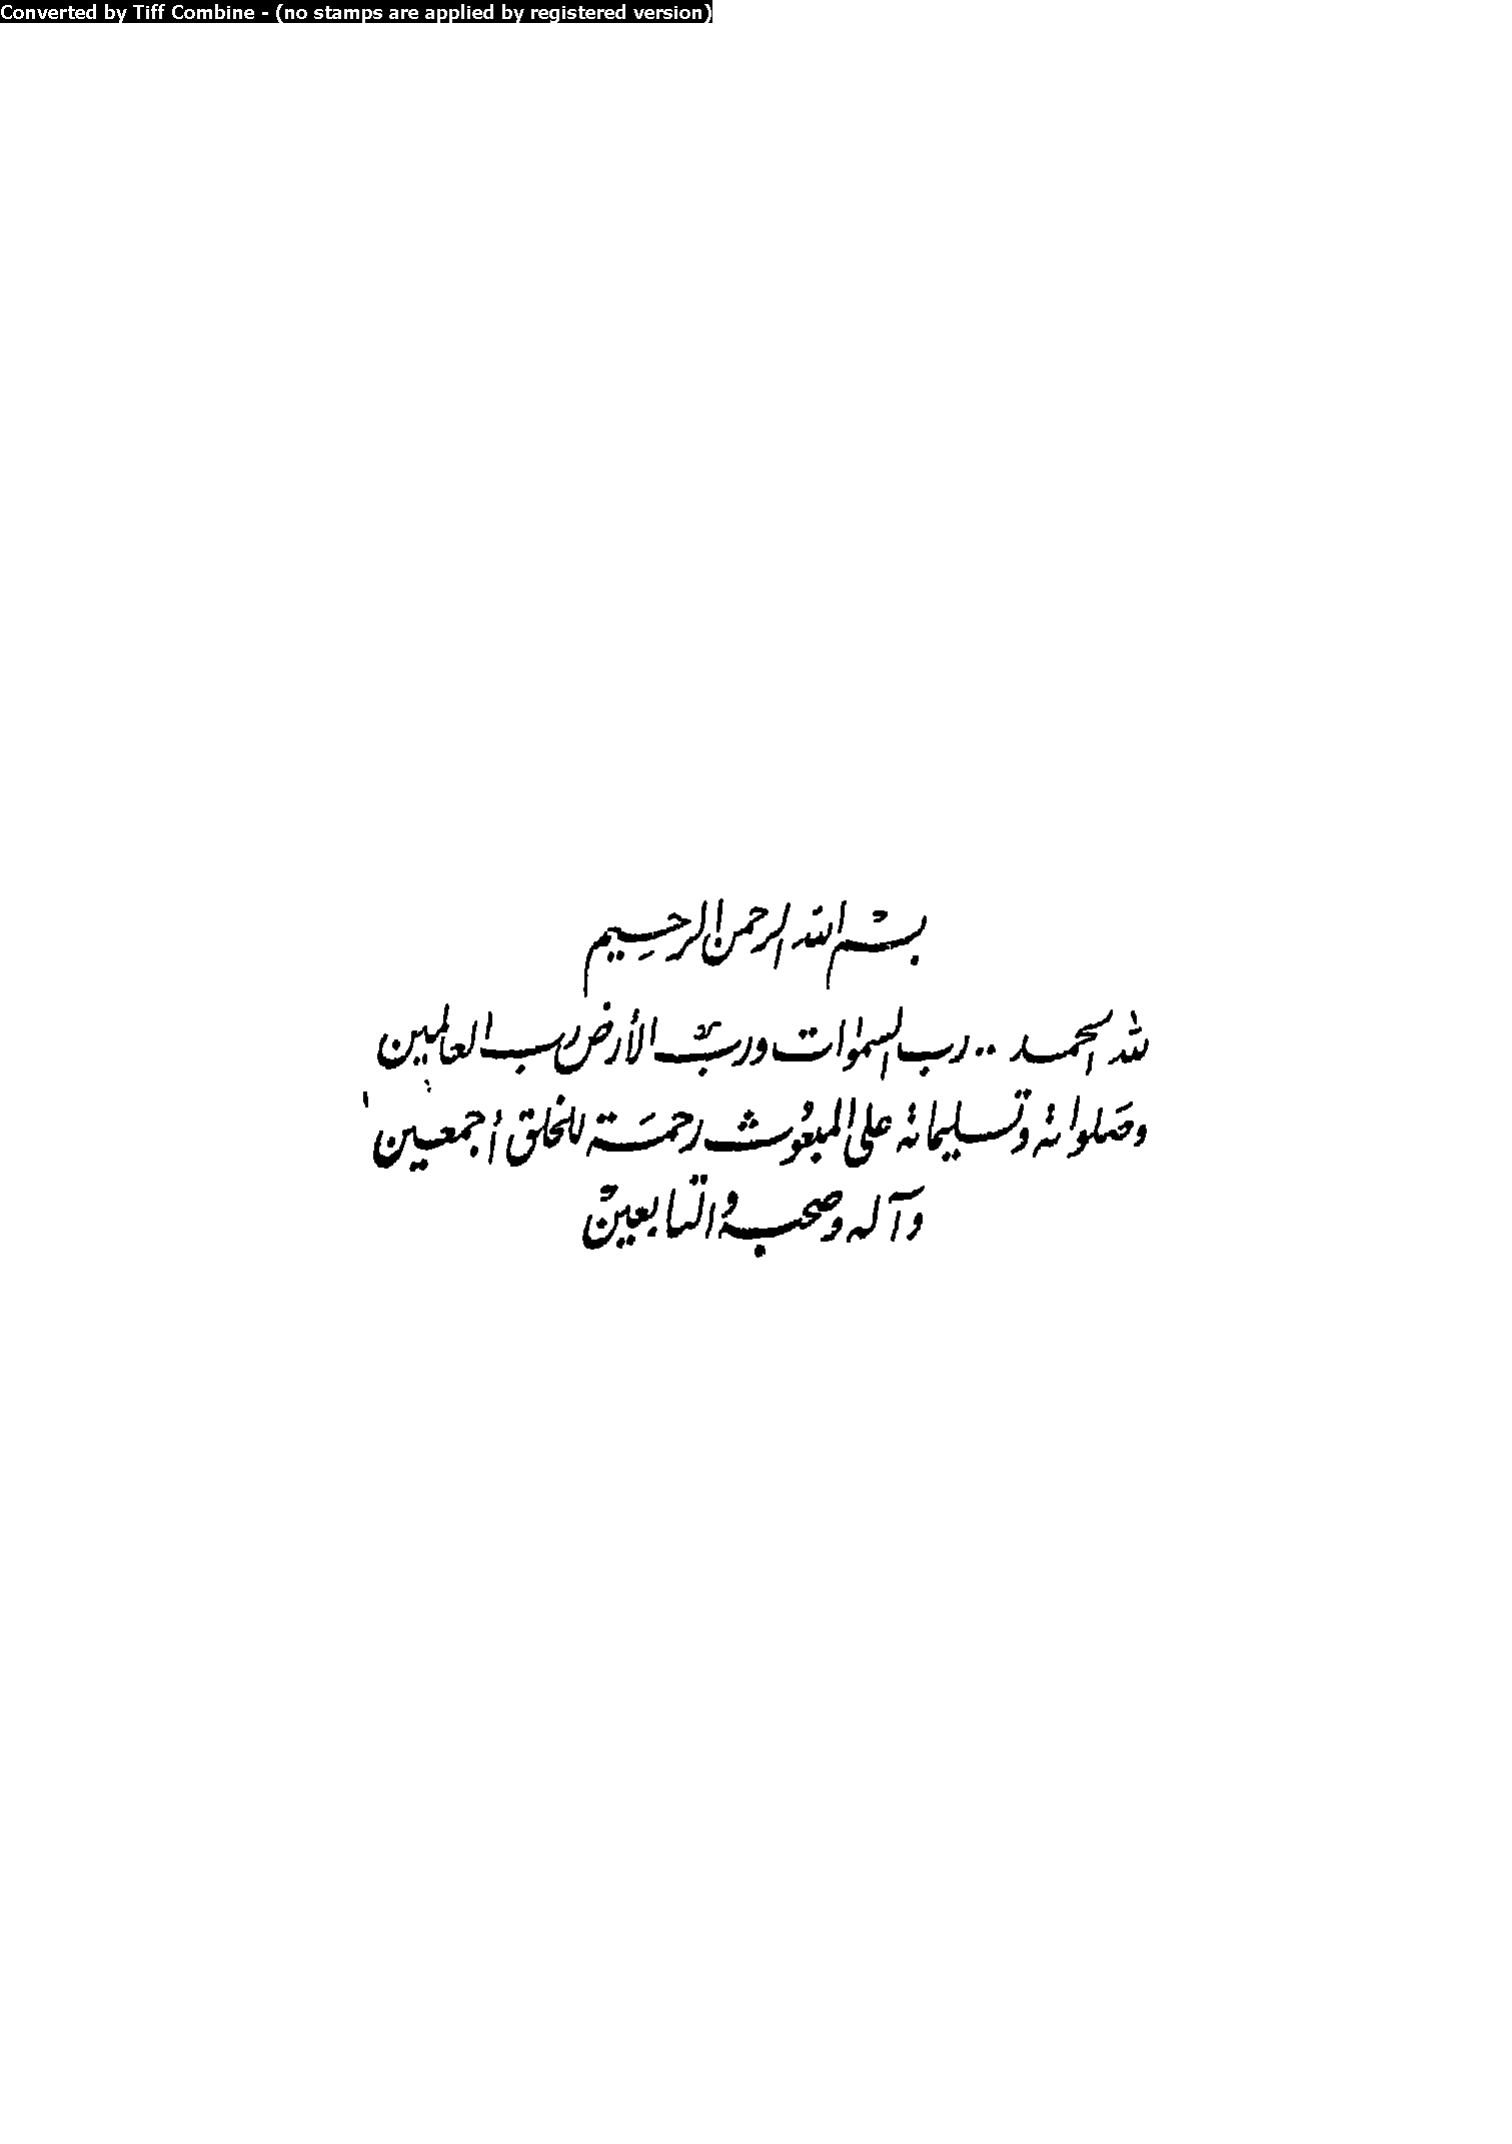 Converted by Tiff Combine - (no stamps are applied by registered version)
بسم الله الرحمن الرحيم
لله الحمد .. رب السموات وربّ الأرض رب العالمين
وصلواته وتسليماته على المبعوث رحمة للخلق أجمعين
وآله وصحبه والتابعين